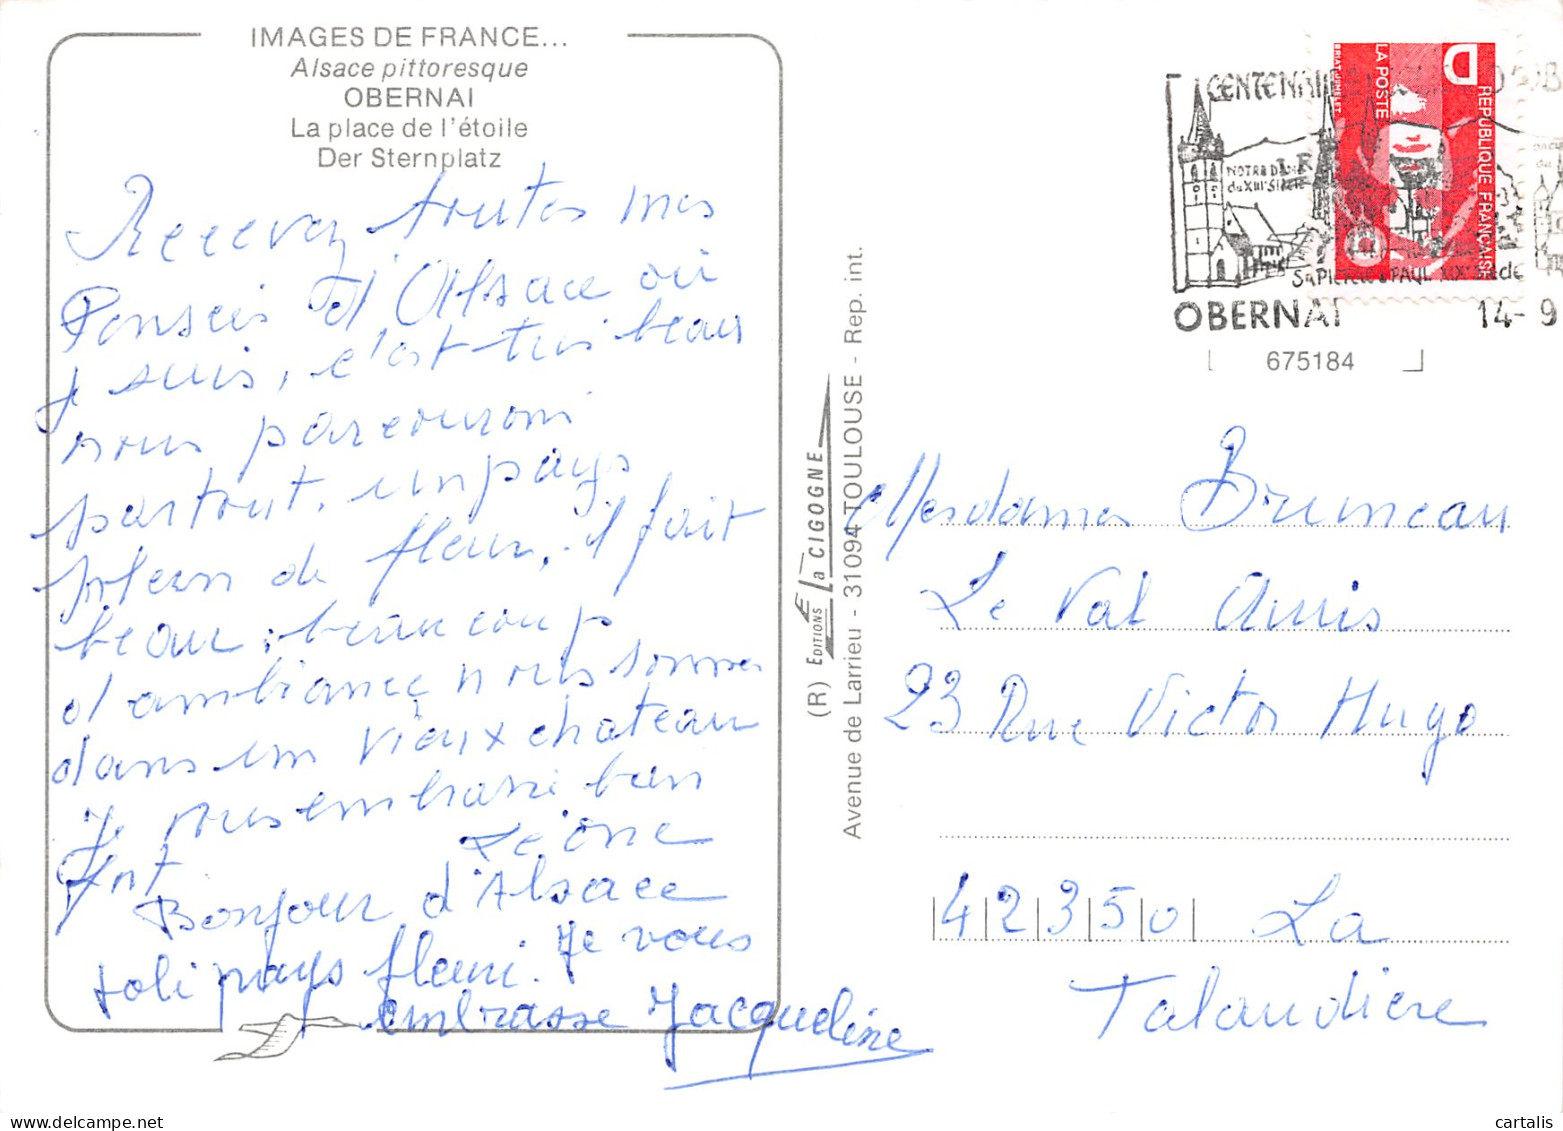 IMAGES DE FRANCE...
Alsace pittoresque
OBERNAI
La place de l'étoile
Der Sternplatz
Recevez toutes mes
Pensées d'Alsace où
je suis, c'est très beau
nous parcourons
partout, un pays
plein de fleur, il fait
beau, beaucoup
d'ambiance nous sommes
dans un vieux chateau
Je vous embrasse bien
fort
Léone
Bonjour d'Alsace
Joli pays fleuri. Je vous
embrasse Jacqueline
(R) EDITIONS La CIGOGNE
Avenue de Larrieu - 31094 TOULOUSE - Rep. int.
CENTENAIRE
NOTRE DAME
du XIIIe Siècle
St PIERRE & PAUL XIXe Siècle
OBERNAI
14-9
D
LA POSTE
REPUBLIQUE FRANÇAISE
BRIAT-JUMELET
675184
Mesdames Bruneau
Le Val Amis
23 Rue Victor Hugo
42350 La
Talaudière
cartalis